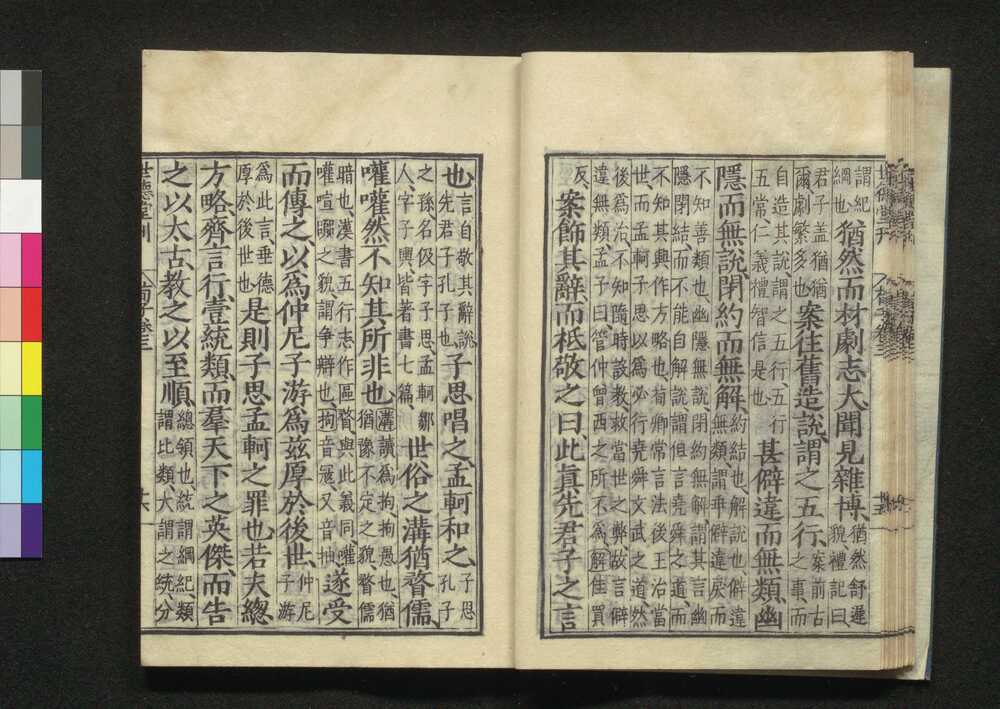 謂紀綱也猶然而材劇志大聞見雜博猶然舒遲貌禮記曰
君子蓋猶猶爾劇繁多也案往舊造說謂之五行案前古之事而
自造其說謂之五行五行五常仁義禮智信是也甚僻違而無類幽
隱而無說閉約而無解約結也解說也僻違無類謂乖僻違戾而
不知善類也幽隱無說閉約無解謂其言幽隱閉結而不能自解說謂但言堯舜之道而
不知其興作方略也荀卿常言法後王治當世而孟軻子思以爲必行堯舜文武之道然
後爲治不知隨時設教救當世之弊故言僻違無類孟子曰管仲曾西之所不爲解佳買
反案飾其辭而祗敬之曰此真先君子之言
也言自敬其辭說先君子孔子也子思唱之孟軻和之子思孔子
之孫名伋字子思孟軻鄒人字子輿皆著書七篇世俗之溝猶瞀儒
嚾嚾然不知其所非也溝讀爲怐怐愚也猶猶豫不定之貌瞀儒
暗也漢書五行志作區瞀與此義同嚾嚾喧囂之貌謂爭辯也怐音寇又音拘遂受
而傳之以爲仲尼子游爲茲厚於後世仲尼子游
爲此言垂德厚於後世也是則子思孟軻之罪也若夫總
方略齊言行壹統類而羣天下之英傑而告
之以太古教之以至順總領也統謂綱紀類謂比類大謂之統分
世德堂刊
荀子卷三
十六